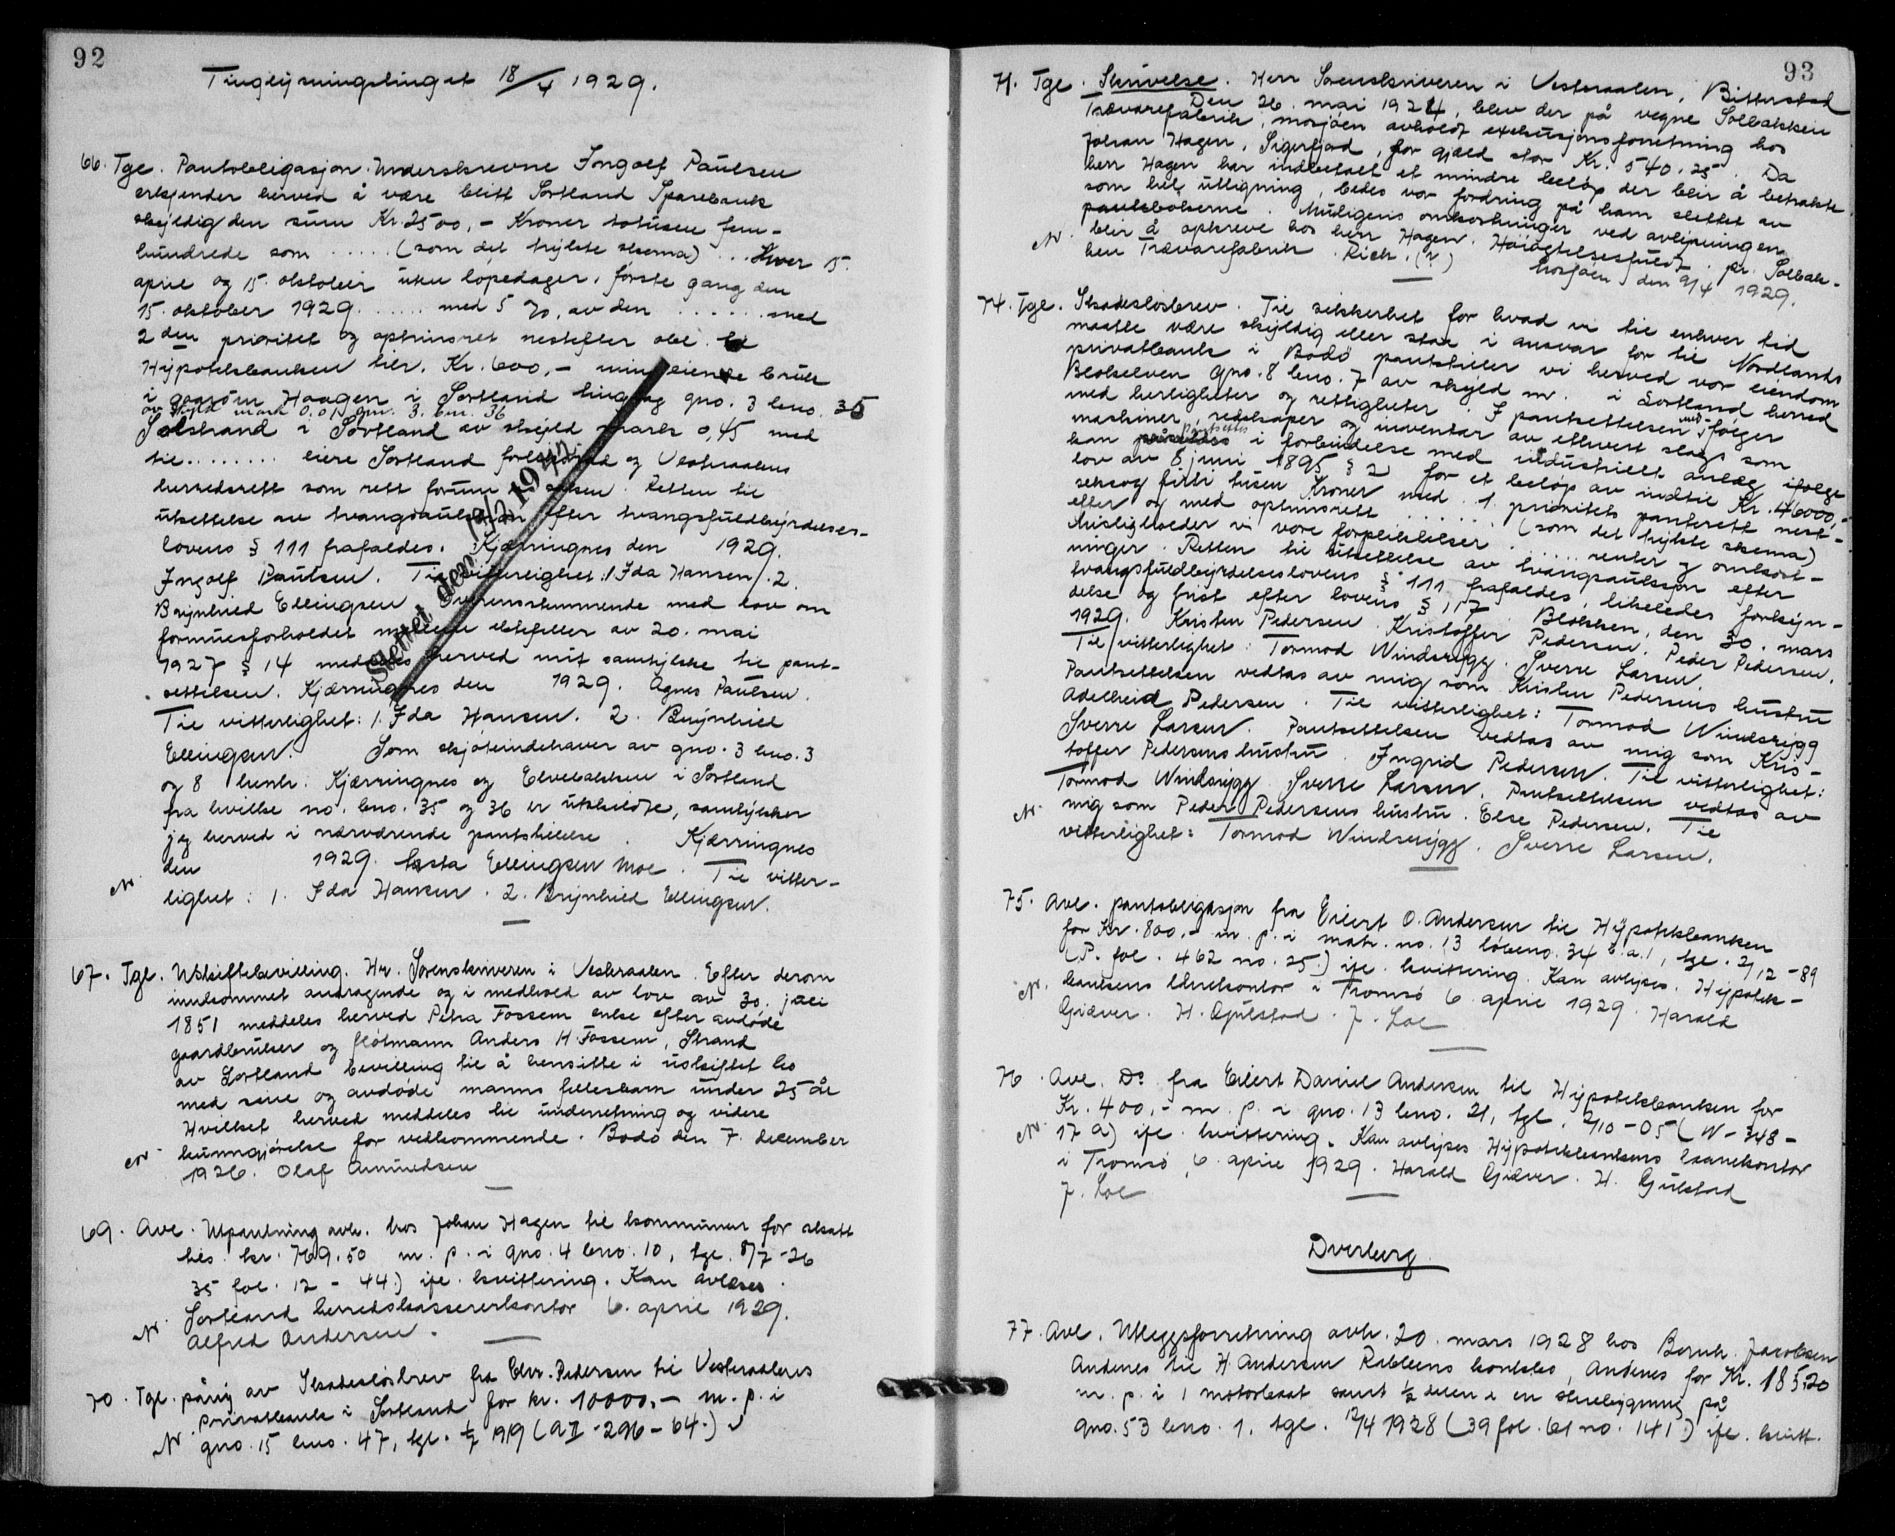 92
Tinglysningstinget 18/4 1929.
66. Tgl. Pantobligasjon. Underskrevne Ingolf Paulsen
erkjender herved å være blitt Sortland Sparebank
skyldig den sum Kr. 2500,- Kroner totusen fem-
hundrede som ..... (som det trykte skema) ... Hver 15.
april og 15. oktober uten løpedager, første gang den
15. oktober 1929 ...... med 5 %, av den ...... med
2den prioritet og optrinsret nestefter obl. til
Hypotekbanken tilr. Kr. 600,- min eiende bruk
i gaarden Haagen i Sortland tinglag gno. 3 bno. 35
av skyld mark 0.01 gnr. 3. bnr. 36
Solstrand i Sortland av skyld mark 0,45 med
til ........ eiere Sortland forliksråd og Vesteraalens
herredsrett som rett forum i saken. Retten til
utsettelse av tvangsauksjon efter tvangsfuldbyrdelses-
lovens § 111 frafaldes. Kjærringnes den 1929.
Ingolf Paulsen. Til vitterlighet: 1. Ida Hansen. 2.
Brynhild Ellingsen. Overensstemmende med lov om
formuesforholdet mellem ektefeller av 20. mai
1927 § 14 meddeles herved mit samtykke til pant-
settelsen. Kjærringnes den 1929. Agnes Paulsen.
Til vitterlighet: 1. Ida Hansen. 2. Brynhild
Ellingsen. Som skjøteindehaver av gno. 3 bno. 3
og 8 benh. Kjærringnes og Elvebakken i Sortland
fra hvilke no. bno. 35 og 36 er utskildte, samtykker
jeg herved i nærværende pantstillelse. Kjærringnes
den 1929. Asta Ellingsen Moe. Til vitter-
N. lighet: 1. Ida Hansen. 2. Brynhild Ellingsen.
Slettet den
67. Tgl. Uskiftebevilling. Hr. Sorenskriveren i Vesteraalen. Efter derom
innkommet andragende og i medhold av lov av 30. juli
1851 meddeles herved Petra Fossem enke efter avdøde
gaardbruker og fløtmann Anders H. Fossem, Strand
av Sortland bevilling til å hensitte i uskiftet bo
med sine og avdøde manns fellesbarn under 25 år
Hvilket herved meddeles til underretning og videre
N. kunngjørelse for vedkommende. Bodø den 7. december
1926. Olaf Amundsen
69. Avl. Utpantning avh. hos Johan Hagen til kommunen for skatt
tils. kr. 769.50 m. p. i gno. 4 bno. 10, tgl. 8/7-26
35 fol. 12 - 44) ifl. kvittering. Kan avlæses.
Sortland herredskassererkontor 6. april 1929.
N. Alfred Andersen.
70. Tgl. påny av Skadesløsbrev fra Elv. Pedersen til Vesteraalens
Privatbank i Sortland for kr. 10000,- m. p. i
N. gno. 15 bno. 47, tgl. 1/7 1919 (A II - 296 - 64.)
93
71. Tgl. Skrivelse. Herr Sorenskriveren i Vesteraalen, Bitterstad
Den 26. mai 1924, blev der på vegne Solbakken
Trævarefabrik, Mosjøen avholdt exekusjonsforretning hos
Johan Hagen, Sigerfjord, for gjæld stor Kr. 540,25. Da
herr Hagen har indbetalt et mindre beløp der blir å betrakte
som hel utligning, bedes vor fordring på ham slettet av
pantebøkerne. Muligens omkostninger ved avlysningen
blir å opkreve hos herr Hagen. Høiagtelsesfuldt. pr. Solbak-
N. ken Trævarefabrik. Rich. (?) Mosjøen den 9/4 1929.
74. Tgl. Skadesløsbrev. Til sikkerhet for hvad vi til enhver tid
maatte være skyldig eller staa i ansvar for til Nordlands
privatbank i Bodø pantstiller vi herved vor eiendom
Blokelven gno. 8 bno. 7 av skyld m. i Sortland herred
med herligheter og rettigheter. I pantsettelsen medfølger
maskiner, redskaper og inventar av ethvert slags som
kan pantsettes i forbindelse med industrielt anlæg ifølge
lov av 8 juni 1895 § 2 for et beløp av indtil Kr. 46000,-
seksogfirti tusen Kroner med 1. prioritets panterett nest-
efter og med optrinsrett ...... (som det trykte skema)
Misligholder vi vore forpliktelser ..... renter og omkost-
ninger. Retten til utsettelse av tvangsauksjon efter
tvangsfuldbyrdelseslovens § 111 frafaldes, likeledes forkyn-
delse og frist efter lovens § 117. Blokken, den 30. mars
1929. Kristen Pedersen. Kristoffer Pedersen. Peder Pedersen.
Til vitterlighet: Tormod Windsrygg. Sverre Larsen.
Pantsettelsen vedtas av mig som Kristen Pedersens hustru
Adelheid Pedersen. Til vitterlighet: Tormod Windsrygg
Sverre Larsen. Pantsettelsen vedtas av mig som Kris-
toffer Pedersens hustru. Ingrid Pedersen. Til vitterlighet:
Tormod Windsrygg. Sverre Larsen. Pantsettelsen vedtas av
N. mig som Peder Pedersens hustru. Else Pedersen. Til
vitterlighet: Tormod Windsrygg. Sverre Larsen.
75. Avl. pantobligasjon fra Eilert O. Andersen til Hypotekbanken
for Kr. 800,- m. p. i matr. no. 13 løbeno. 34 b.a.1, tgl. 2/12-89
(P. fol. 462 no. 25.) ifl. kvittering. Kan avlyses. Hypotek-
N. bankens lånekontor i Tromsø 6. april 1929. Harald
Giæver. H. Gulstad. J. Lol
76. Avl. Do fra Eilert Daniel Andersen til Hypotekbanken for
Kr. 400,- m. p. i gno. 13 bno. 21, tgl. 2/10-05 (N - 348 -
N. 17 a) ifl. kvittering. Kan avlyses Hypotekbankens laanekontor
i Tromsø, 6. april 1929. Harald Giæver. H. Gulstad
J. Lol
Dverberg
77. Avl. Utleggsforretning avh. 20. mars 1928 hos Bernh. Jacobsen
Andenes til H. Andersen Robbens konkbo, Andenes for Kr. 185,20
m. p. i 1 motorbaat samt 1/2 delen i en skrebygning på
gno. 53 bno. 1. tgl. 12/4 1928 (39 fol. 61 no. 141.) ifl. kvitt.